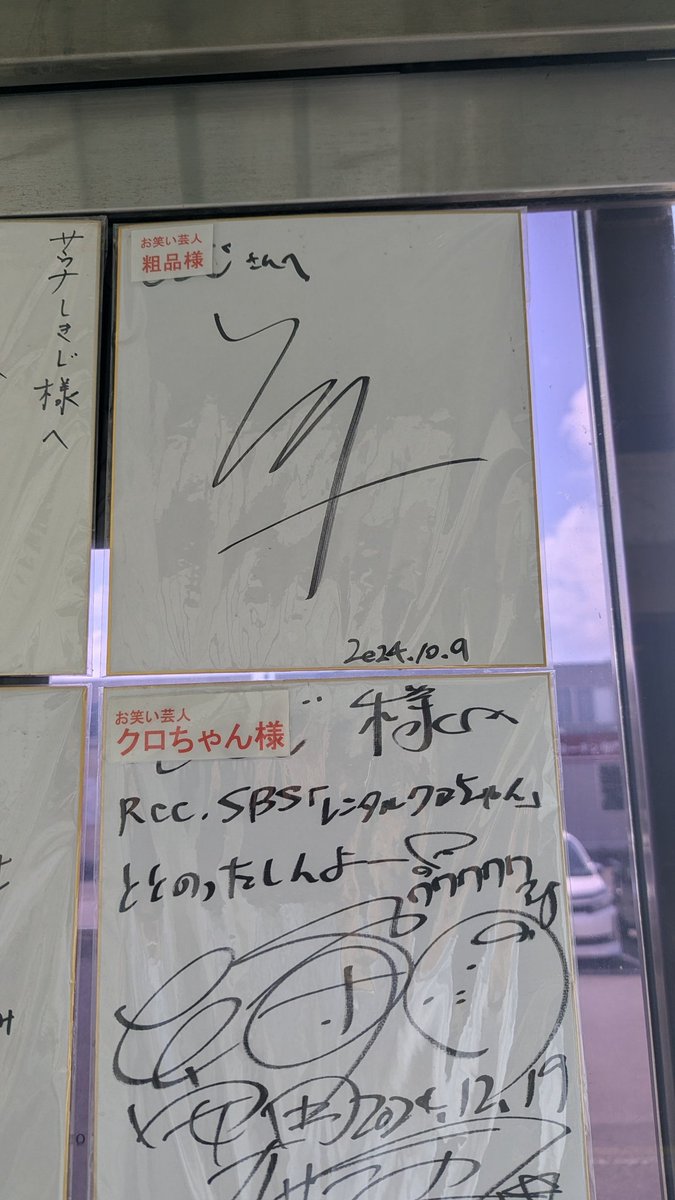 サウナしきじ様へ
お笑い芸人
粗品様
じさんへ
2024.10.9
お笑い芸人
クロちゃん様
じ様へ
RCC.SBS「レンタルクロちゃん」
ととのったしんよー
ワワワワワ
2024.12.19